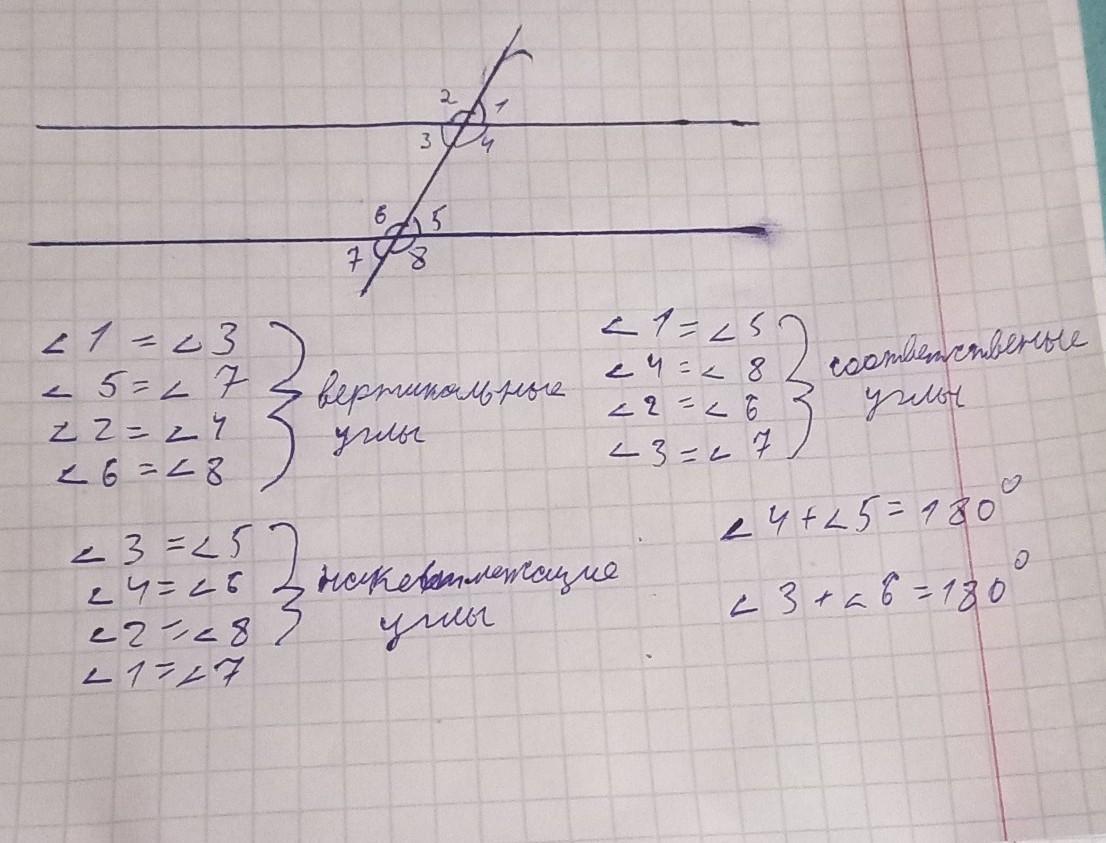 2 1
3 4
6 5
7 8
∠1 = ∠3
∠5 = ∠7
∠2 = ∠4
∠6 = ∠8
вертикальные
углы
∠1 = ∠5
∠4 = ∠8
∠2 = ∠6
∠3 = ∠7
соответственые
углы
∠3 = ∠5
∠4 = ∠6
∠2 = ∠8
∠1 = ∠7
углы
∠4 + ∠5 = 180°
∠3 + ∠6 = 180°